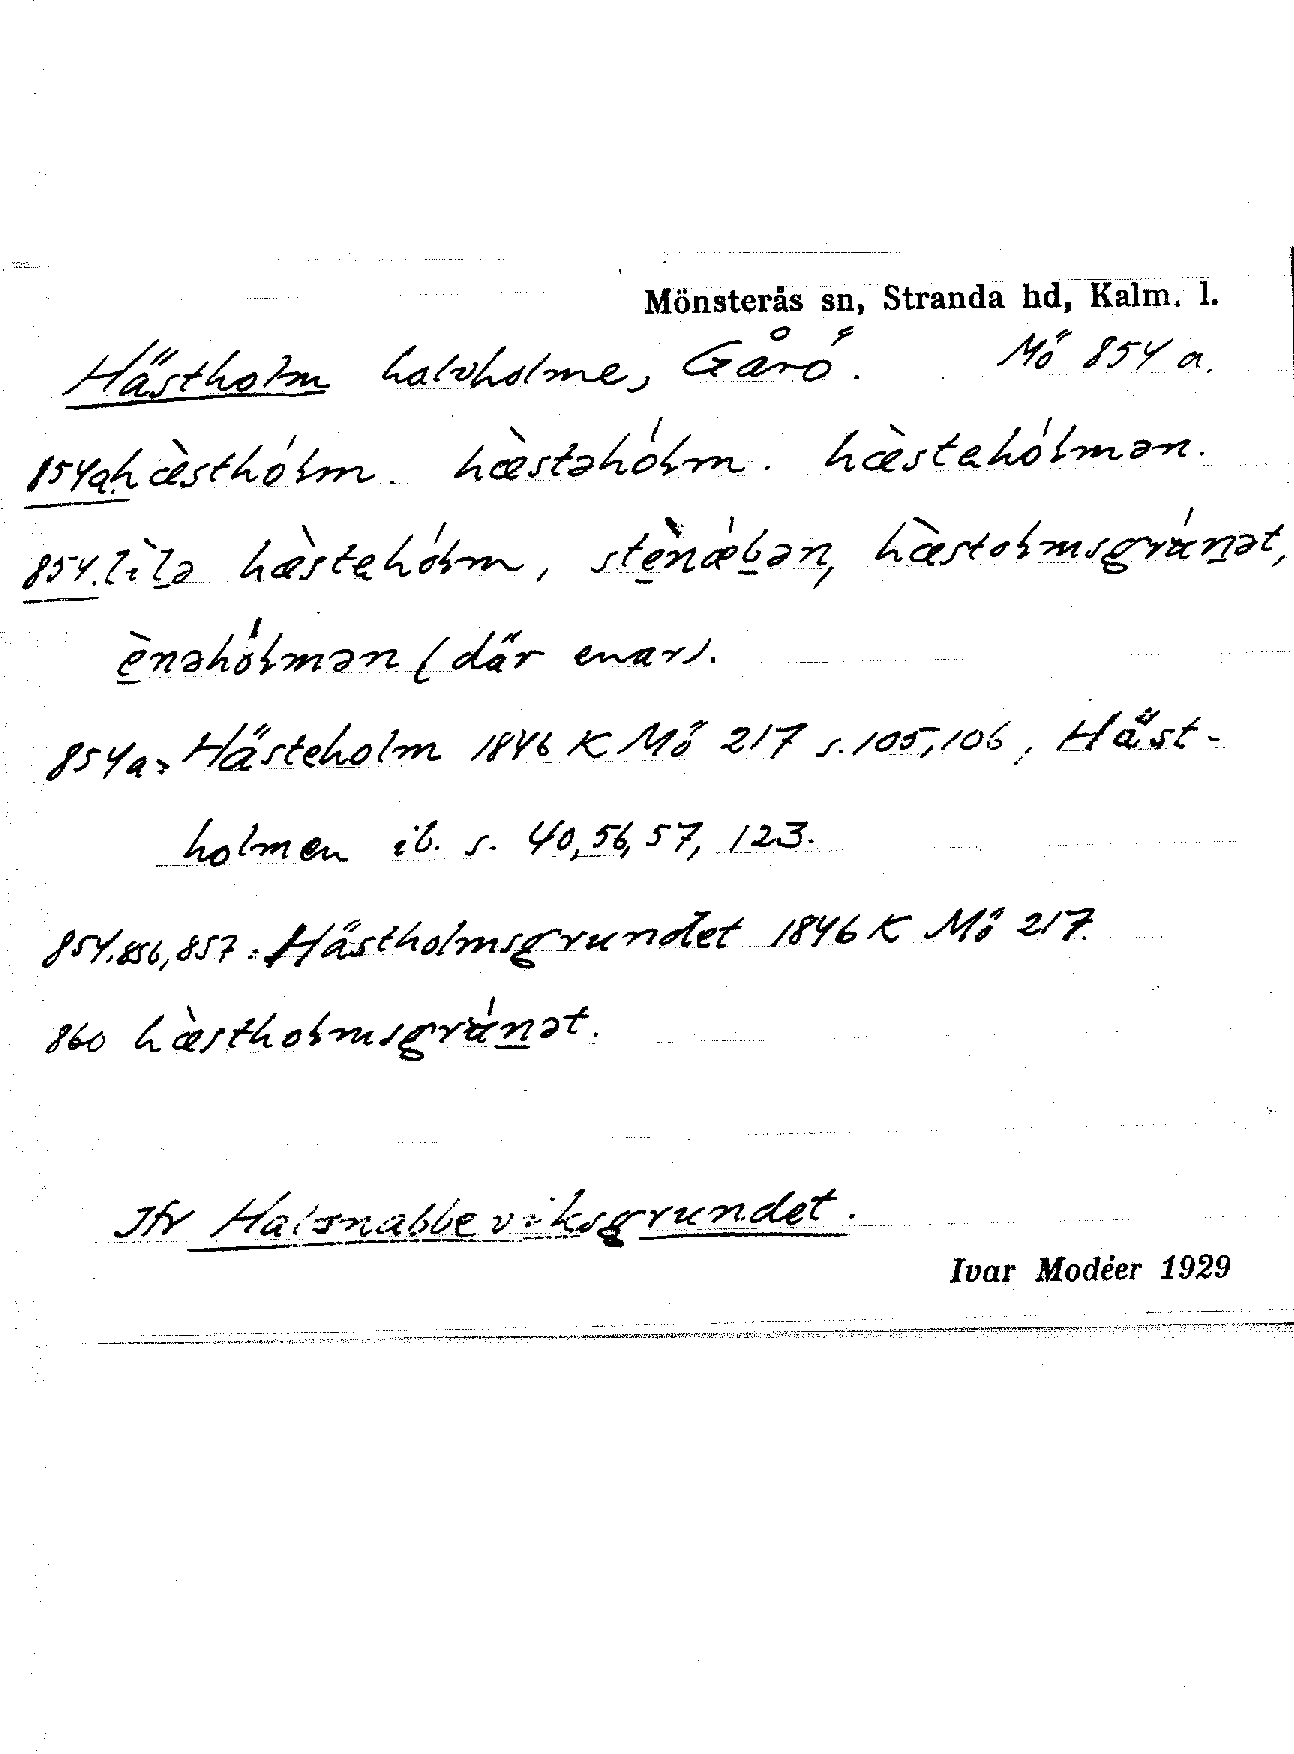 Mönsterås sn, Stranda hd, Kalm. l.
Hästholm halvholme, Gårö. Mö 854 a.
854a. hæ̀sthóɫm. hæ̀stəhóɫm. hæ̀stɐhóɫmən.
854. lìlə hæ̀stɐhóɫm, stènæ̀bən, hæ̀stoɫmsgrúnət,
ènəhóɫmən (där enar).
854a, Hästeholm 1846 K Mö 217 s. 105, 106, Häst-
holmen ib. s. 40, 56, 57, 123.
854, 856, 857. Hästholmsgrundet 1846 K Mö 217.
860 hæ̀sthoɫmsgrúnət.
Jfr Halsnabbeviksgrundet.
Ivar Modéer 1929